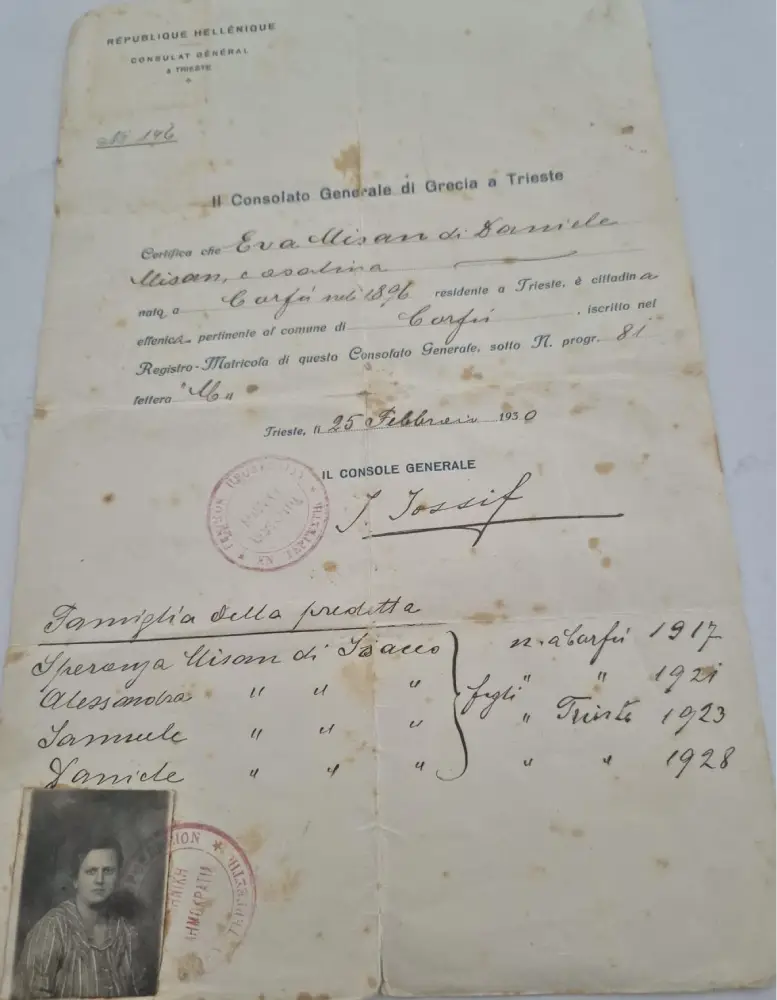 RÉPUBLIQUE HELLÉNIQUE
CONSULAT GÉNÉRAL
À TRIESTE
No 146
Il Consolato Generale di Grecia a Trieste
Certifica che Eva Misan di Daniele
Misan, casalina
nata a Corfù nel 1896 residente a Trieste, è cittadina
ellenica pertinente al comune di Corfù, iscritto nel
Registro-Matricola di questo Consolato Generale, sotto N. progr. 81
lettera "M"
Trieste, li 25 Febbraio 1930
IL CONSOLE GENERALE
J. Jossif
ΕΝ ΤΕΡΓΕΣΤΗ
Famiglia della predetta
Speranza Misan di Isacco } figli n. a Corfù 1917
Alessandra " " " " " 1921
Samuele " " " " Trieste 1923
Daniele " " " " " 1928
ΔΗΜΟΚΡΑΤΙΑ
ΤΕΡΓΕΣΤΗ